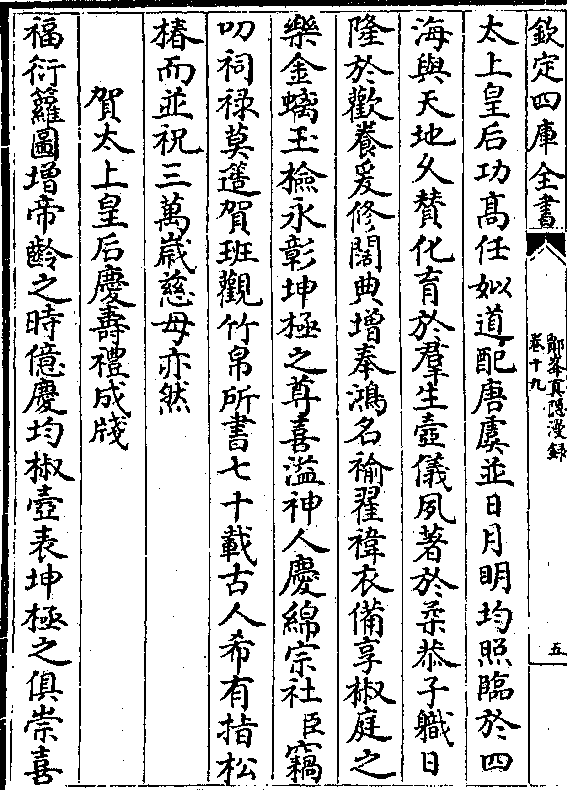 欽定四庫全書
鄮峯真隱漫録
卷十九
五
太上皇后功髙任姒道配唐虞並日月明均照臨於四
海與天地久贊化育於羣生壼儀夙著於柔恭子職日
隆於歡養爰修闊典增奉鴻名褕翟褘衣備享椒庭之
樂金螭玉檢永彰坤極之尊喜溢神人慶綿宗社臣竊
叨祠禄莫遂賀班觀竹帛所書七十載古人希有指松
椿而並祝三萬嵗慈母亦然
賀太上皇后慶壽禮成牋
福衍籮圖增帝齡之時億慶均椒壼表坤極之俱崇喜